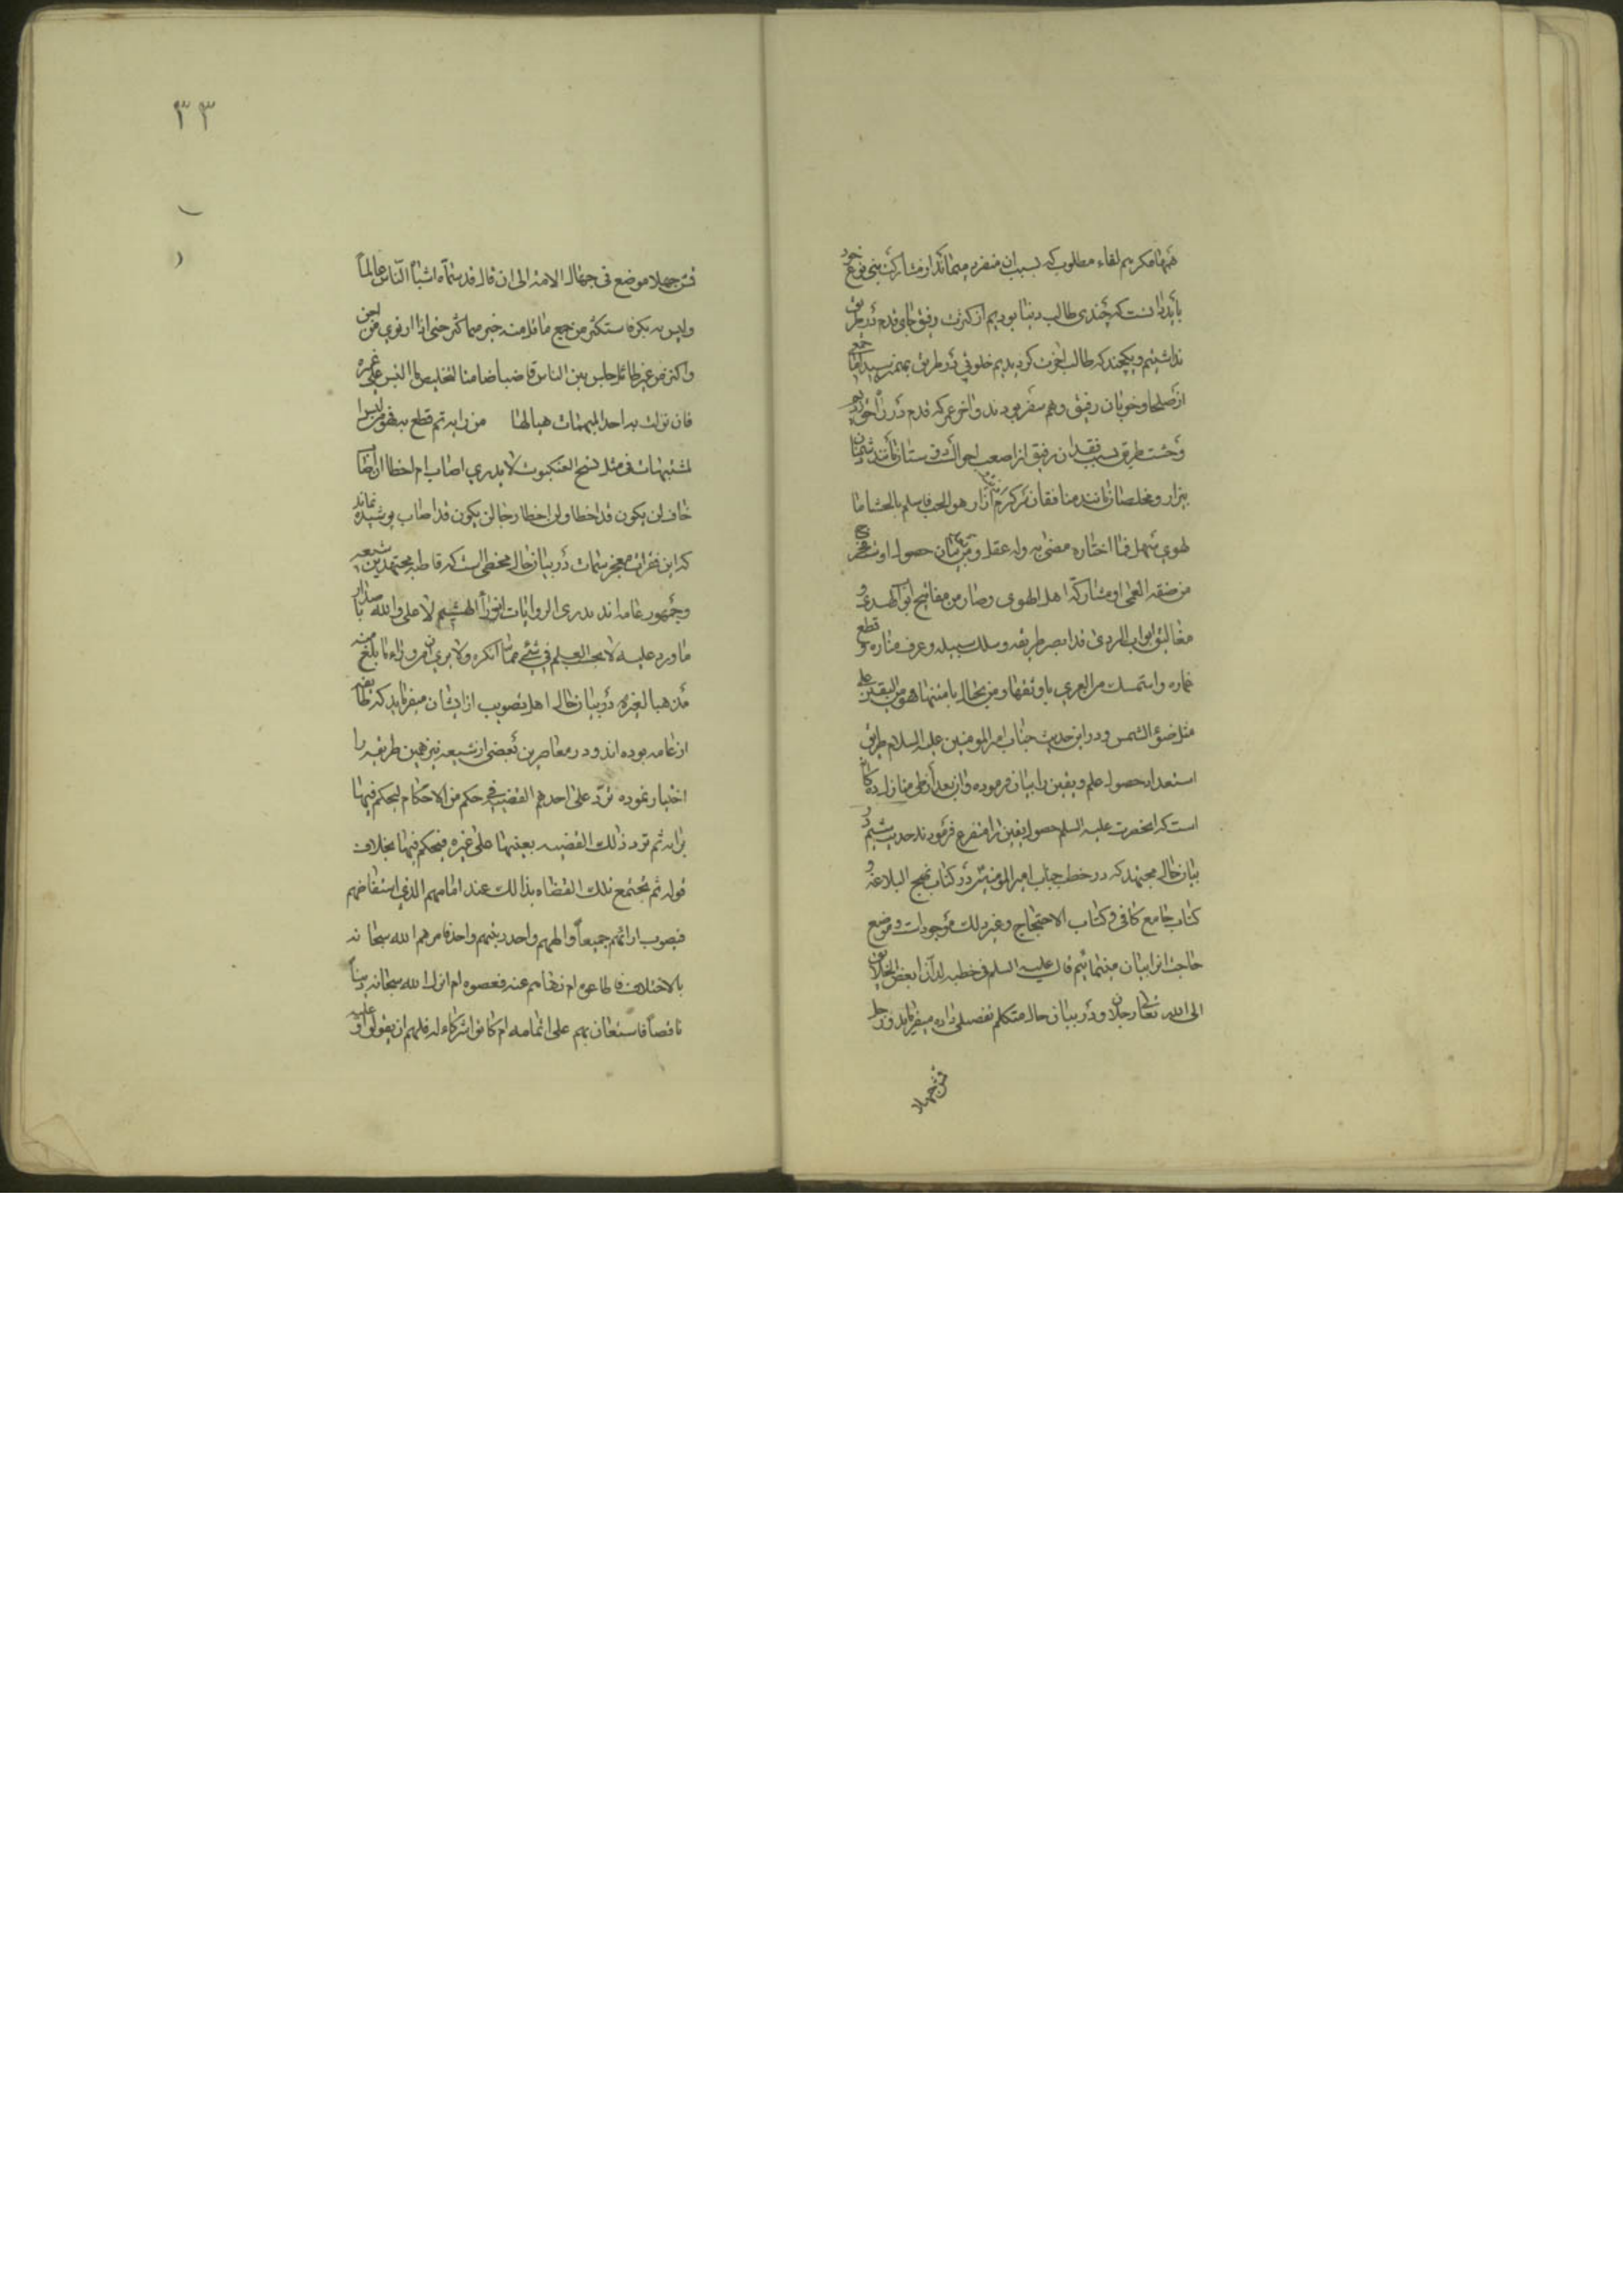 همها مكر هم لقاء مطلوب که بسبب ان منفرد میماند از مشارکت بنی نوع خود
باید دانست که چندی طالب دنیا بودیم از کثرت رفیق جای قدم در طریق
نداشتیم و یکچند که طالب اخرت کردیدیم خلوتی در طریق بهم رسید اما جمعی
از صلحا و خوبان رفیق و هم سفر بودند و اخر عمر که قدم در راه
وحشت طریق بسبب فقدان رفیق از اصعب احوال دوستان مانند دشمنان
بیزار و مخلصان مانند منافقان در آزار هو الحب فاسلم بالحشا ما
الهوی سهل فما اختاره مضنی به وله عقل و در بیان حصول او
من صفة العمی و مشارکة اهل الهوی و صار من مفاتیح ابواب الهدی و
مغالیق ابواب الردی قد ابصر طریقه و سلک سبیله و عرف مناره و قطع
غماره و استمسک من العری باوثقها و من الحبال بامتنها فهو من الیقین علی
مثل ضوء الشمس و در این حدیث جناب امیر المومنین علیه السلام طریق
استعداد حصول علم و یقین را بیان فرموده و این بعد از طی منازل ده کانه
است که انحضرت علیه السلم حصول یقین را متفرع فرمودند حدیث ششم در
بیان حال مجتهد که در خطب جناب امیر المومنین در کتاب نهج البلاغه و
کتاب جامع کافی و کتاب الاحتجاج و غیر ذلک موجود است و موضع
حاجت را بیان مینمائیم قال علیه السلم فی خطبه له ان ابغض الخلایق
الی الله تعالی رجلان و در بیان حال متکلم تفصیلی داده میفرماید و رجل
قمش جهلا
۳۳
قمش جهلا موضع فی جهال الامة الی ان قال قد سماه اشباه الناس عالما
ولیس به بکر فاستکثر من جمع ما قل منه خیر مما کثر حتی اذا ارتوی من اجن
واکتنز من غیر طائل جلس بین الناس قاضیا ضامنا لتخلیص ما التبس علی غیره
فان نزلت به احد المبهمات هیا لها من رایه ثم قطع به فهو من لبس
المشتبهات فی مثل نسج العنکبوت لا یدری اصاب ام اخطا ان اصاب
خاف ان یکون قد اخطا وان اخطا رجا ان یکون قد اصاب پوشیده نماند
که این فقرات معجز سمات در بیان حال مخطی است که قاطبه مجتهدین شیعه
و جمهور عامه اند یذری الروایات اذراء الهشیم لا ملی والله باصدار
ما ورد علیه لا یحسب العلم فی شئ مما انکره ولا یری ان من وراء ما بلغ منه
مذهبا لغیره در بیان حال اهل تصویب از ایشان میفرماید که طایفه
از عامه بوده اند و در معاصرین بعضی از شیعه نیز همین طریقه را
اختیار نموده ترد علی احدهم القضیه فی حکم من الاحکام لیحکم فیها
برایه ثم ترد ذلک القضیه بعینها علی غیره فیحکم فیها بخلاف
قوله ثم یجتمع تلک القضاه بذالک عند امامهم الذی استقضاهم
فیصوب ارائهم جمیعا والههم واحد ونبیهم واحد فامرهم الله سبحانه
بالاختلاف فاطاعوه ام نهاهم عنه فعصوه ام انزل الله سبحانه دینا
ناقصا فاستعان بهم علی اتمامه ام کانوا شرکاء له فلهم ان یقولوا وعلیه